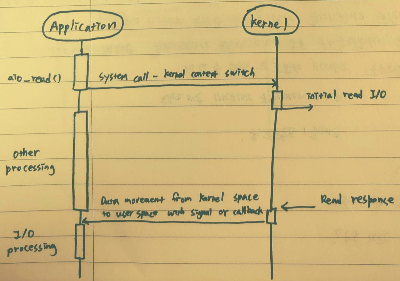 Application
Kernel
aio_read()
System call - Kernel context switch
Initial read I/O
other
processing
Data movement from Kernel space
to user space with signal or callback
Read response
I/O
processing